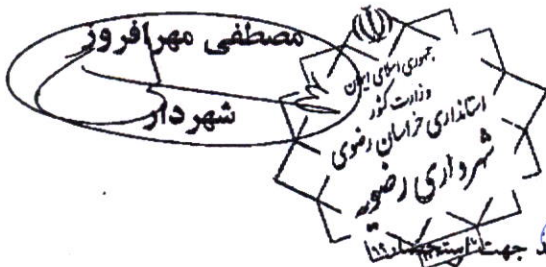 مصطفی مهرافروز
شهردار
جمهوری اسلامی ایران
وزارت کشور
استانداری خراسان رضوی
شهرداری رضویه
جهت